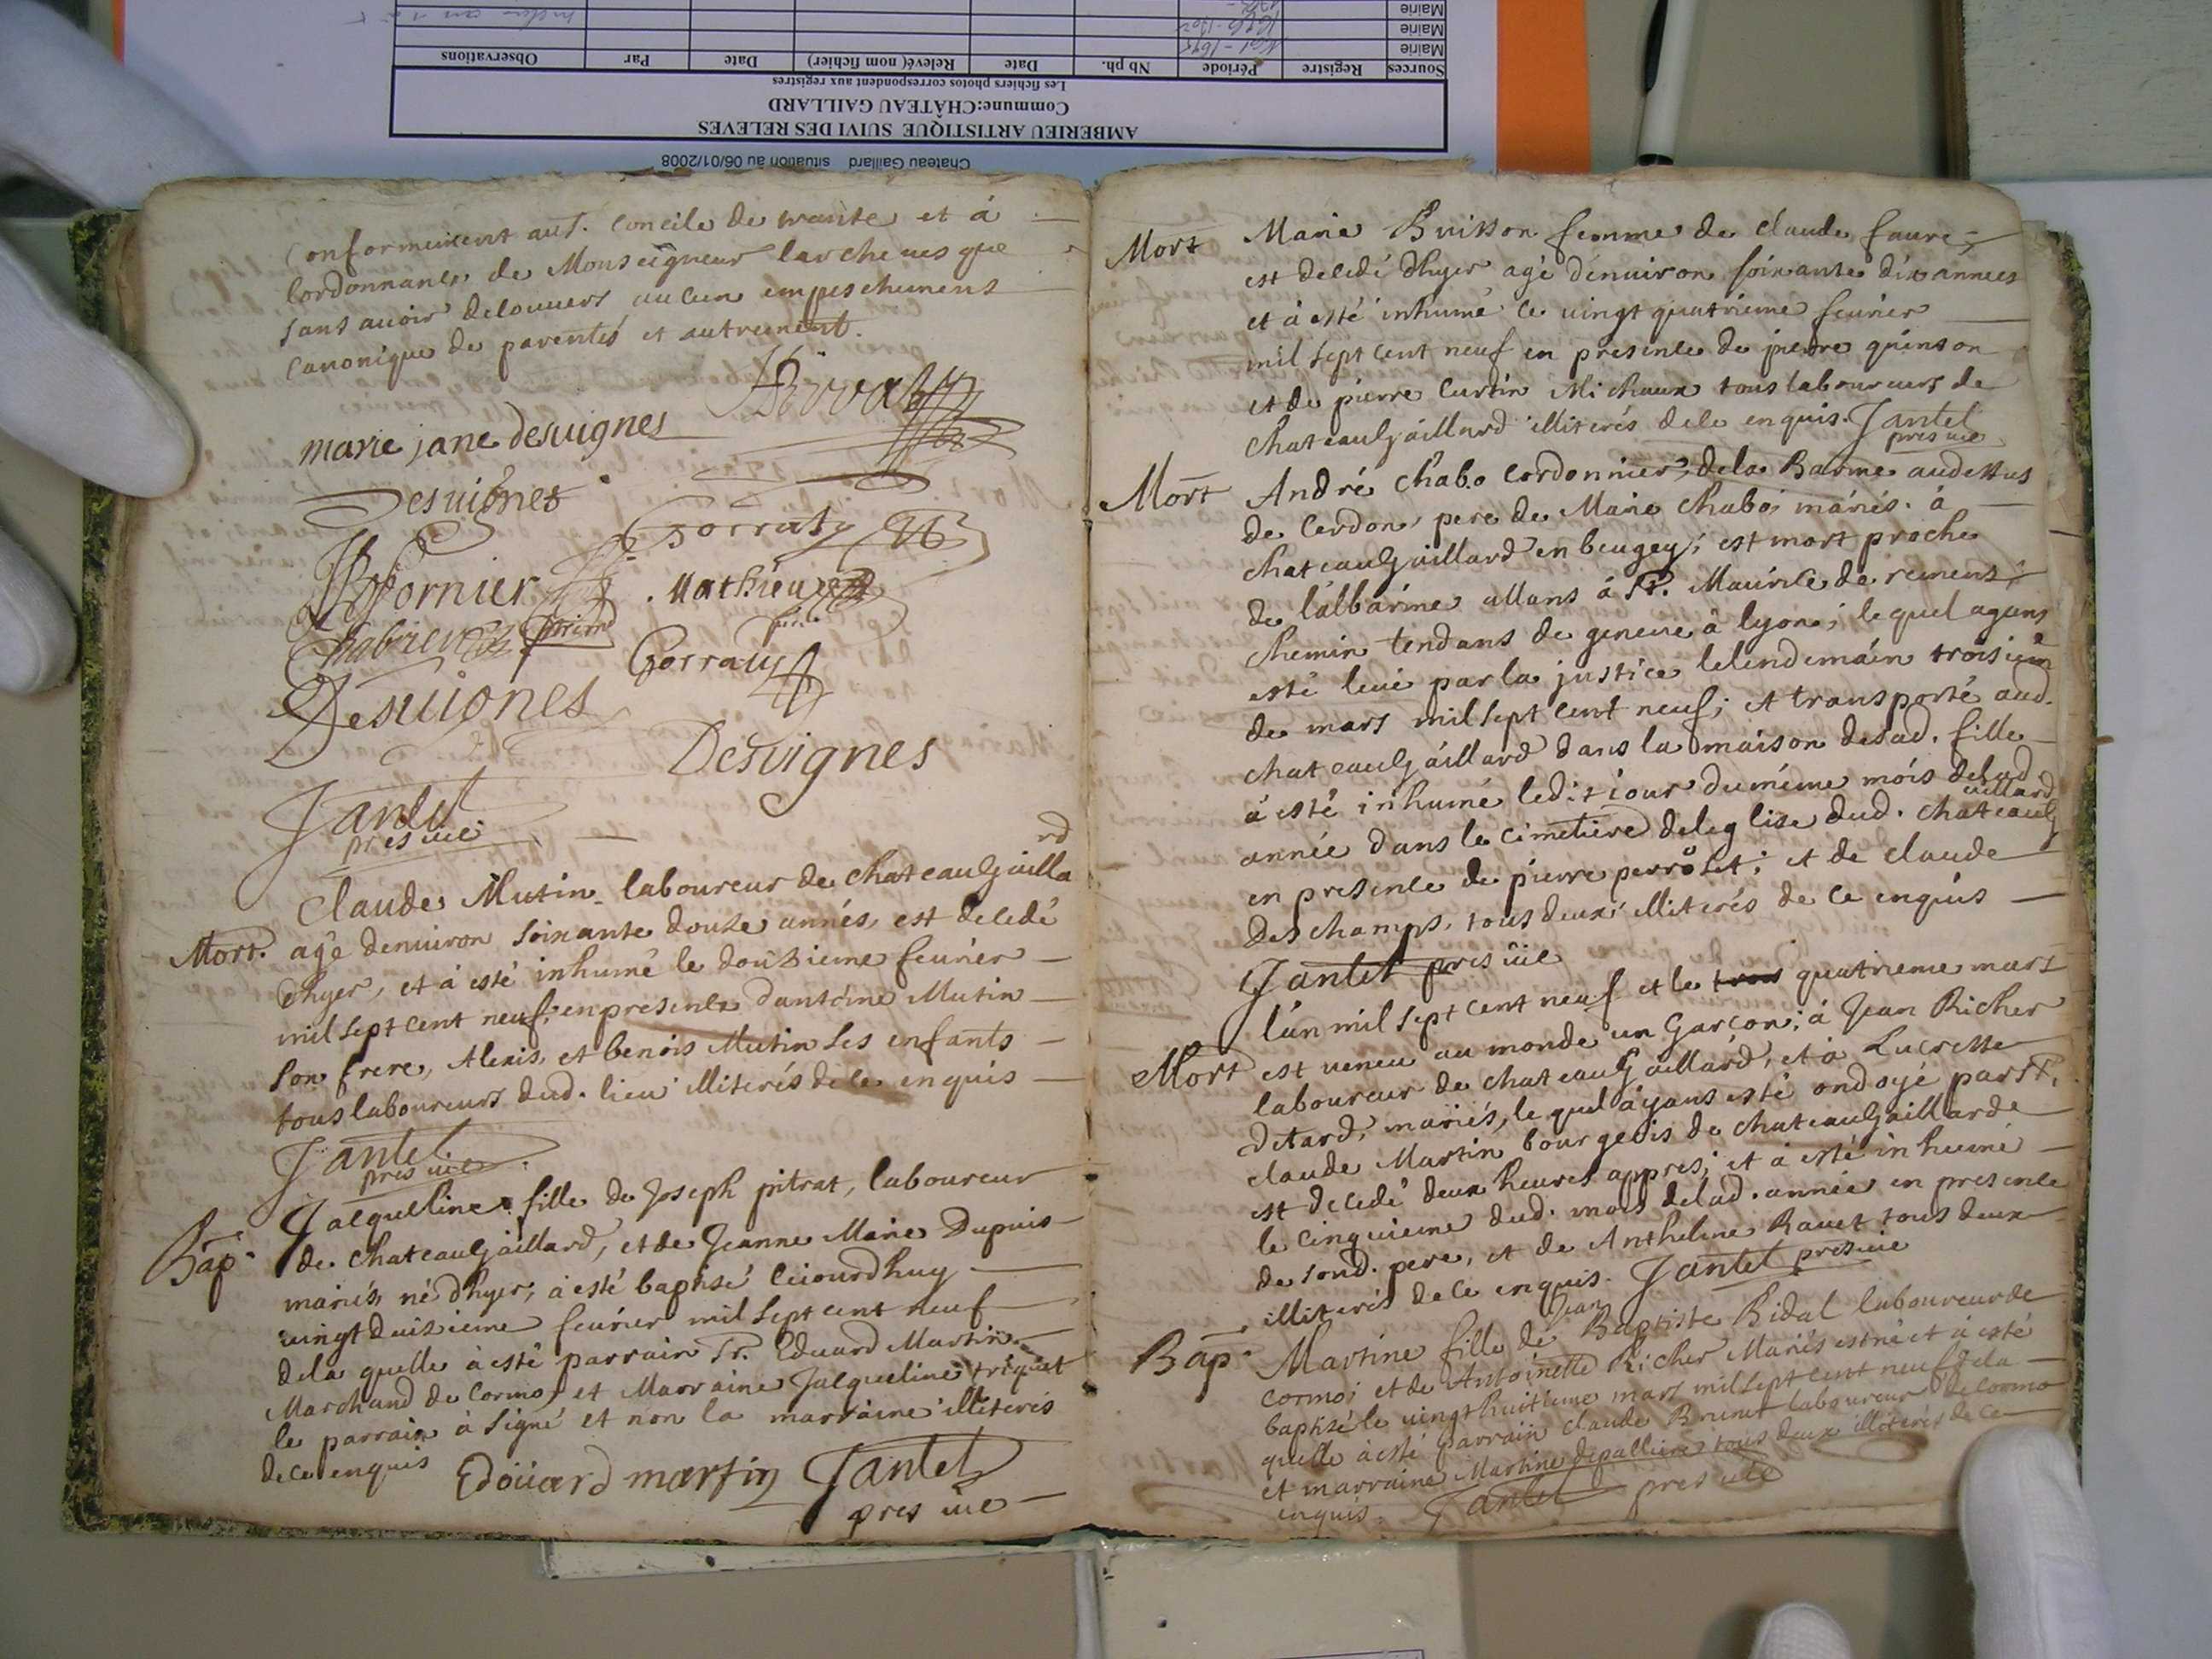 Chateau Gaillard situation au 06/01/2008
AMBERIEU ARTISTIQUE SUIVI DES RELEVES
Commune:CHÂTEAU GAILLARD
Les fichiers photos correspondent aux registres
Sources Registre Période Nb ph. Date Relevé( nom fichier) Date Par Observations
Mairie
Mairie
Mairie
conformement au S. Concile de trante et á
lordonnance de Monseigneur larchevesque
sans avoir decouvers aucun empeschemens
canonique de parentés et autrement.
marie jane desvignes
Desvignes
Gorraty
Mathieu
Gorraty
Desvignes
Desvignes
Jantet
pres vic
Claude Mutin laboureur de chateaugailla
rd
Mort. agé denviron soixante douze annés, est decedé
dhyer, et á esté inhumé le douzieme fevrier
mil sept cent neuf, en presence dantoine Mutin
son frere, Alexis, et benois Mutin ses enfants
tous laboureurs dud. lieu illiterés de ce enquis
Jantet
pres vic
Bap. Jacqueline fille de Joseph pitrat, laboureur
de chateaugaillard, et de Jeanne Marie Dupuis
mariés, né dhyer, á esté baptisé ceiourdhuy
vingt duizieme fevrier mil sept cent neuf
dela quelle á esté parrain Sr. Eduard Martin
Marchand de Cormoz et Marraine Jacqueline triquet
le parrain á signé et non la marraine illiteris
de ce enquis
Edoüard martin Jantet
pres vic
Mort Marie Buisson femme de claude faure,
est decedé dhyer agé dénviron soixante dix annees
et á esté inhumé le vingt quatrieme fevrier
mil sept cent neuf en presence de pierre quinson
et de pierre Curtin Michaux tous laboureurs de
chateaugaillard illiterés de ce enquis. Jantet
pres vic
Mort André chabo cordonnier, dela Barme audessus
de Cerdon, pere de Marie chabo, mariés á
chateaugaillard en beugey, est mort proche
de lálbarine allans á St. Maurice de remens,
chemin tendans de geneve á lyon, lequel ayans
esté levé par la justice lelendemain troisiem
de mars mil sept cent neuf, et transporté aud.
chateaugaillard dans la maison desad. fille
á esté inhumé ledit iour du méme mois delad.
année dans le cimetiere deleglise dud. chateaug
aillard
en presence de pierre perrolet, et de claude
Deschamps, tous deux illiterés de ce enquis
Jantet pres vic
lán mil sept cent neuf et le trois quatrieme mars
Mort est veneu au monde un Garcon, á Jean Richer
laboureur de chateaugaillard, et á Lucresse
ditard, mariés, le quel áyans esté ondoyé par Sr.
claude Martin bourgeois de chateaugaillard
est decedé deux heures appres, et á esté inhumé
le cinquieme dud. mois delad. année en presence
de sond. pere, et de Anthelme Ravet tous deux
illiterés de ce enquis. Jantet pres vic
Jean
Bap. Martine fille de Baptiste Bidal laboureur de
cormoz et de Antoinette Richer Mariés est né et á esté
baptisé le vingthuitieme mars mil sept cent neuf dela
quelle á esté parrain claude Brunet laboureur de Cormo
et marraine Martine depalliere tous deux illiterés de ce
enquis. Jantet pres vic